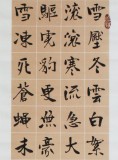 雪壓冬雲白絮
滾滾寒流急大
驅虎豹更無豪
雪凍死蒼蠅未